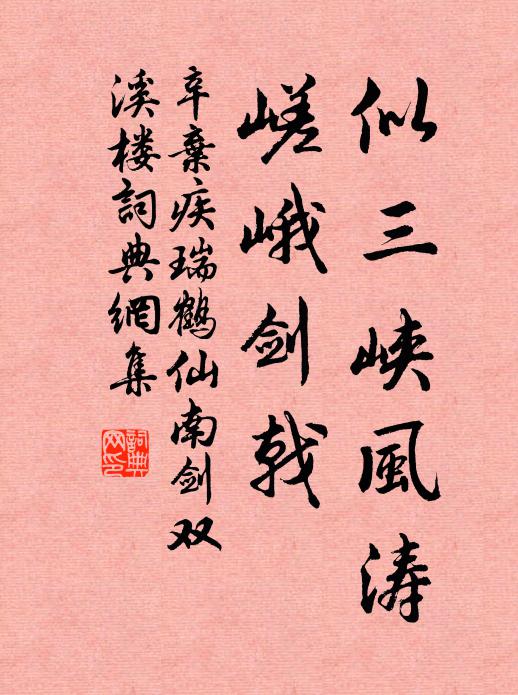 似三峡風涛
嵯峨剑戟
辛棄疾瑞鹤仙南剑双
溪楼詞典網集
詞典
网印